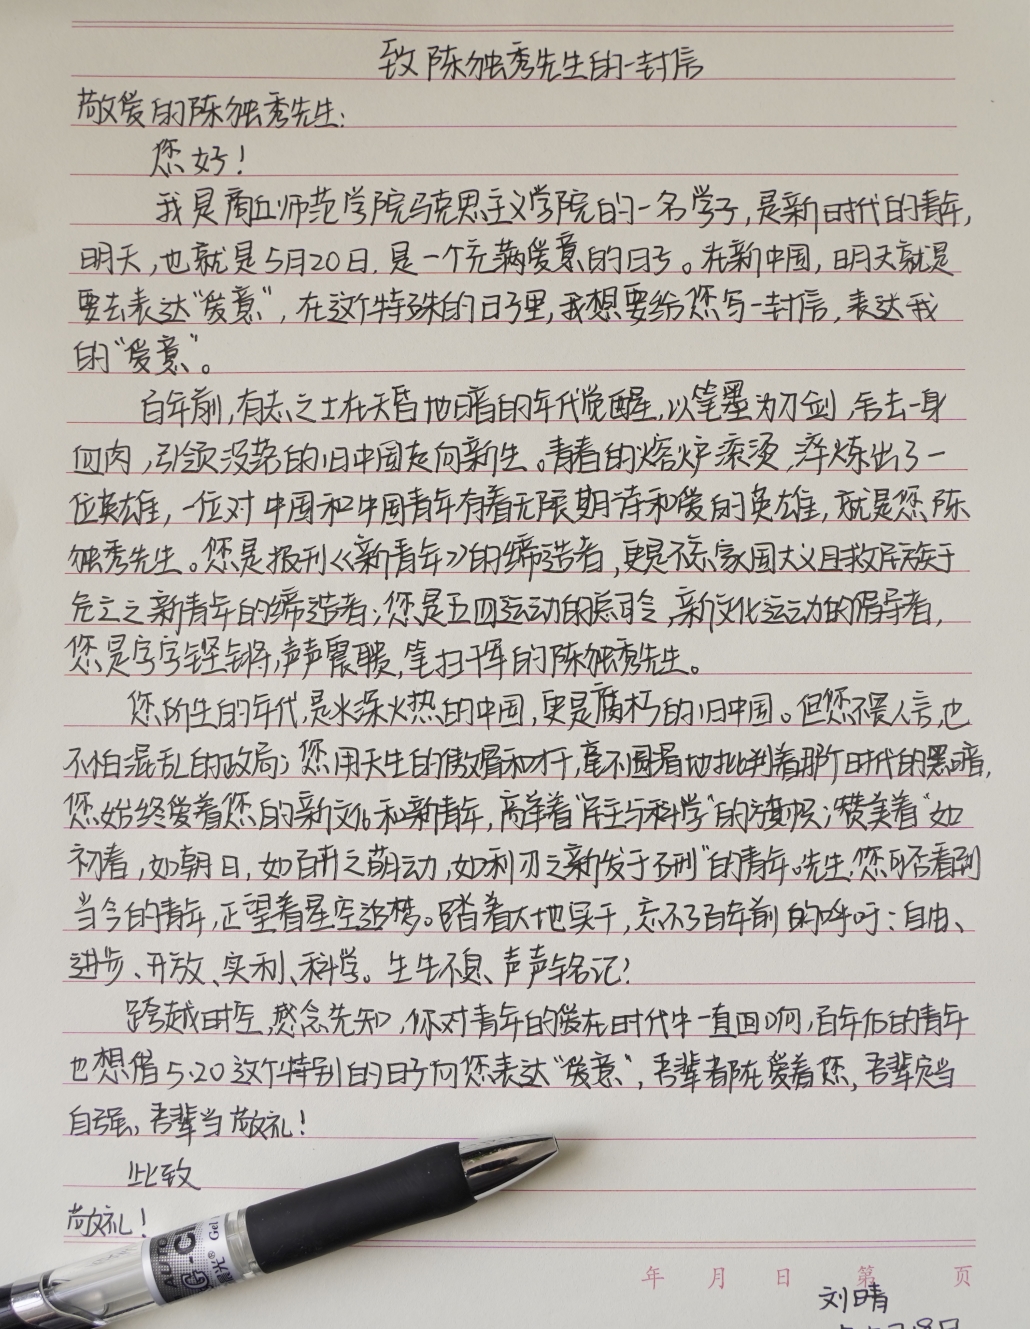 致陈独秀先生的一封信
敬爱的陈独秀先生:
您好!
我是商丘师范学院马克思主义学院的一名学子,是新时代的青年,
明天,也就是5月20日,是一个充满爱意的日子。在新中国,明天就是
要去表达“爱意”,在这个特殊的日子里,我想要给您写一封信,表达我
的“爱意”。
百年前,有志之士在天昏地暗的年代觉醒,以笔墨为刀剑,舍去一身
血肉,引领没落的旧中国走向新生。青春的熔炉滚烫,淬炼出了一
位英雄,一位对中国和中国青年有着无限期待和爱的英雄,就是您陈
独秀先生。您是报刊《新青年》的缔造者,更是不忘家国大义且救民族于
危亡之新青年的缔造者;您是五四运动的总司令,新文化运动的倡导者,
您是字字铿锵,声声震聩,笔扫千军的陈独秀先生。
您所生的年代,是水深火热的中国,更是腐朽的旧中国。但您不畏人言,也
不怕混乱的政局;您用天生的傲眉和才干,毫不圆滑地批判着那个时代的黑暗,
您始终爱着您的新文化和新青年,高举着“民主与科学”的旗帜;赞美着“如
初春,如朝日,如百卉之萌动,如利刃之新发于硎”的青年。先生,您可否看到
当今的青年,正望着星空追梦。踏着大地实干,忘不了百年前的呼吁:自由、
进步、开放、实利、科学。生生不息、声声铭记!
跨越时空,感念先知,你对青年的爱在时代中一直回响,百年后的青年
也想借5·20这个特别的日子向您表达“爱意”,吾辈都在爱着您,吾辈定当
自强,吾辈当敬礼!
此致
敬礼!
AUTO
G-
Gel
晨光®
年 月 日 第 页
刘晴